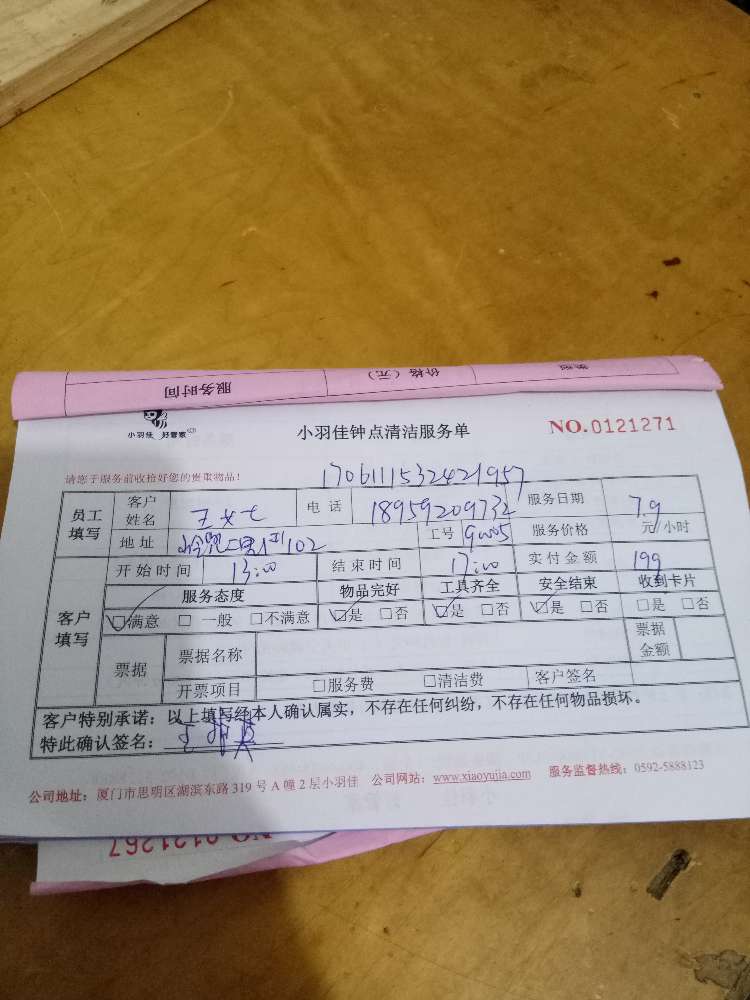 服务时间 价格（元） 类型
小羽佳 好管家
小羽佳钟点清洁服务单 NO.0121271
请您于服务前收拾好您的贵重物品！ 1706111532421957
员工填写 客户姓名 王女士 电话 18959209732 服务日期 7.9
地址 102 工号 服务价格 元/小时
客户填写 开始时间 13:00 结束时间 17:00 实付金额 199
服务态度 物品完好 工具齐全 安全结束 收到卡片
☑满意 □一般 □不满意 ☑是 □否 ☑是 □否 ☑是 □否 □是 □否
票据 票据名称 票据金额
开票项目 □服务费 □清洁费 客户签名
客户特别承诺：以上填写经本人确认属实，不存在任何纠纷，不存在任何物品损坏。
特此确认签名：
公司地址：厦门市思明区湖滨东路 319 号 A 幢 2 层小羽佳 公司网站：www.xiaoyujia.com 服务监督热线：0592-5888123
NO.0121267